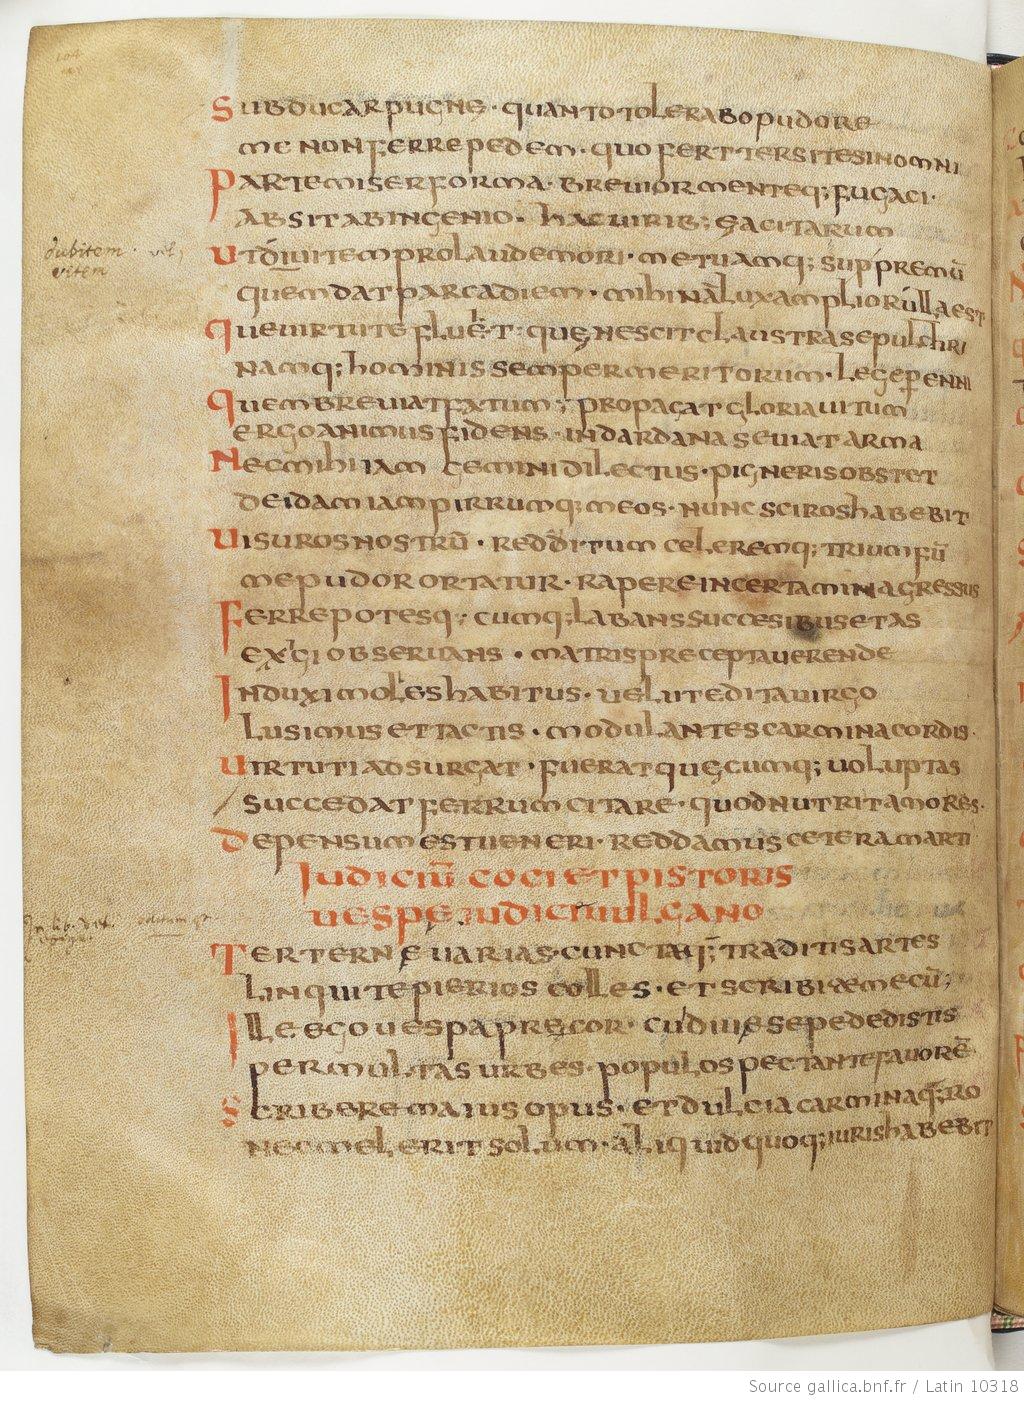 SUBDUCAR PUGNE · QUANTO TOLERABO PUDORE
ME NON FERRE PEDEM · QUO FERT TERSITES IN OMNI
PARTE MISER FORMA · BREUIOR MENTEQ; FUGACI ·
ABSIT AB INGENIO · HAC UIRIB; GACITARUM
UT DIUITEM PRO LAUDE MORI · METUAMQ; SUPPREMŪ
QUEM DAT PARCA DIEM · MIHI NĀ LUX AMPLIOR ULLA EST
QUE UIRTUTE FLUET · QUĘ NESCIT CLAUSTRA SEPULCHRI
NAMQ; HOMINIS SEMPER MERITORUM · LEGE PERENNI
QUEM BREUIAT FATUM ; PROPAGAT GLORIA UITUM
ERGO ANIMUS FIDENS · IN DARDANA SEUIAT ARMA
NEC MIHI IAM GEMINI DILECTUS · PIGNERIS OBSTET
DEIDAMIAM PIRRUMQ; MEOS · NUNC SCIROS HABEBIT
UISUROS NOSTRŪ · REDDITUM CELEREMQ; TRIUMFŪ
ME PUDOR ORTATUR · RAPERE IN CERTAMINA GRESSUS
FERRE POTESQ; CUMQ; LABANS SUCCESIBUS ETAS
EXIGI OBSERUANS · MATRIS PRECEPTA UERENDE
INDUXI MOLLES HABITUS · UELUT EDITA UIRGO
LUSIMUS ET TACTIS · MODULANTES CARMINA CORDIS ·
UIRTUTI ADSURGAT · FUERAT QUĘCUMQ; UOLUPTAS
SUCCEDAT FERRUM CITARE · QUOD NUTRIT AMORES ·
DEPENSUM EST UENERI · REDDAMUS CETERA MARTI
IUDICIŪ COCI ET PISTORIS
UESPE IUDICI UULCANO
TER TERNE UARIAS · CUNCTAQ; TRADITIS ARTES
LINQUITE PIERIOS COLLES · ET SCRIBITE MECŪ;
ILLE EGO UESPA PRECOR · CUI DIUE SEPE DEDISTIS
PER MULTAS URBES · POPULO SPECTANTE FAUORĒ
SCRIBERE MAIUS OPUS · ET DULCIA CARMINA QRO
NEC MEL ERIT SOLUM · ALIQUID QUOQ; IURIS HABEBIT
dubitem · vel,
vitem
Source gallica.bnf.fr / Latin 10318